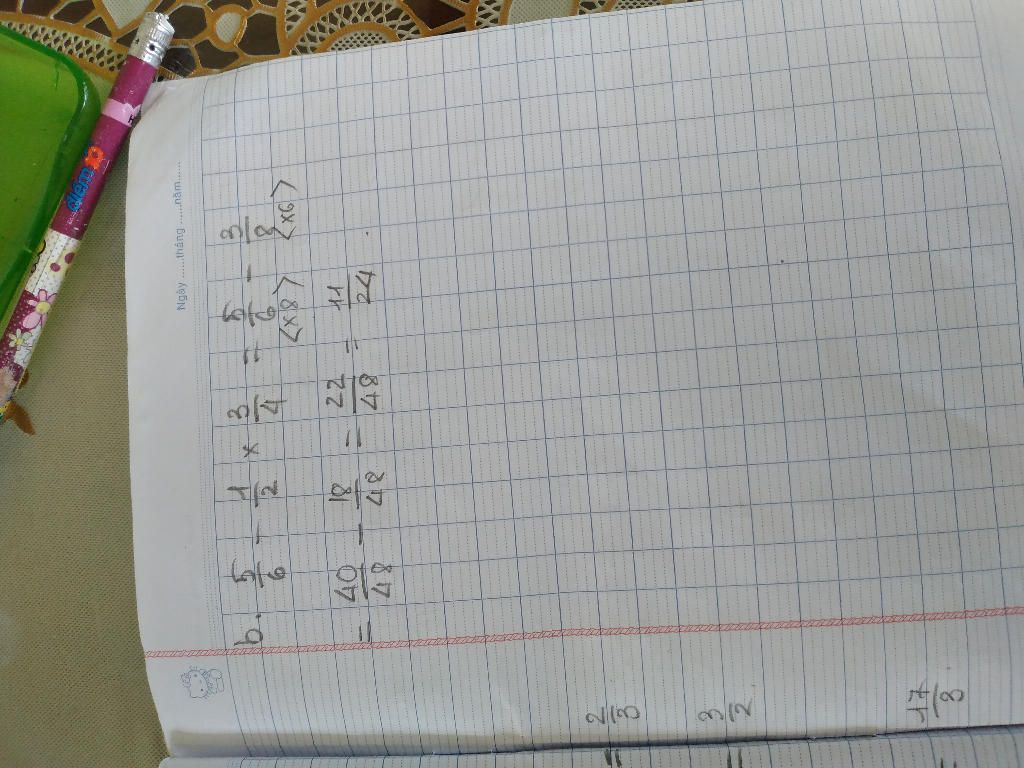 Ngày ......tháng ......năm ......
b. 5/6 - 1/2 x 3/4 = 5/6 - 3/8
(x8) (x6)
= 40/48 - 18/48 = 22/48 = 11/24 .
= 2/3
= 3/2
= 17/3